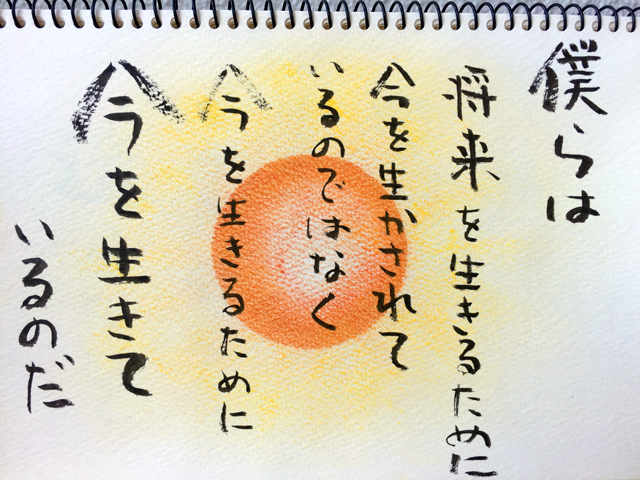 僕らは
将来を生きるために
今を生かされて
いるのではなく
今を生きるために
今を生きて
いるのだ